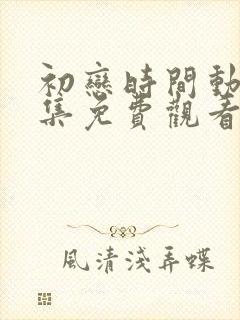 初戀時間動
集免費觀看
風清淺弄蝶